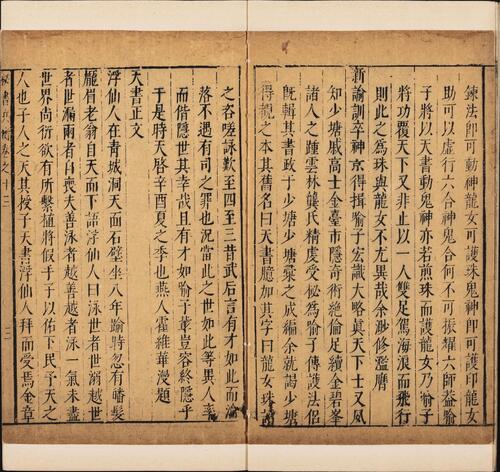 鍊法即可動神龍女可護珠鬼神即可護印龍女
助可以虛行六合神鬼合何不可振耀六師蓋喻
子將以天書動鬼神亦若煎珠而護龍女乃喻子
將功覆天下又非止以一人雙足駕海浪而飛行
則此之為珠與龍女不尤異哉余渺修濫膺
新諭訓卒神京得揖喻子宏識大略眞天下士又夙
知少塘戚高士金臺市隱奇術絶倫足續金碧峯
諸人之踵雲林龔氏精度受秘為喻子傳護法侣
旣輯其書政于少塘少塘槩之成編余就謁少塘
得覩之本其舊名曰天書臆加其字曰龍女珠
之咨嗟詠歎至四至三昔武后言有才如此而淪
落不遇有司之罪也況當此之世如此等異人率
而偕隱世其幸哉且有才如喻子輩豈容終隱乎
于是時天啓辛酉夏之季也燕人霍維華漫題
天書正文
浮仙人在青城洞天面石壁坐八年踰時忽有皤髮
龐眉老翁自天而下語浮仙人曰泳世者世溺越世
者世漏兩者自喪夫善泳者越善越者泳一氣未盡
世界尚衍欲有所繫植將假手于予以佑下民予天之
人也子人之天其授子天書浮仙人拜而受焉金章
卷之十三